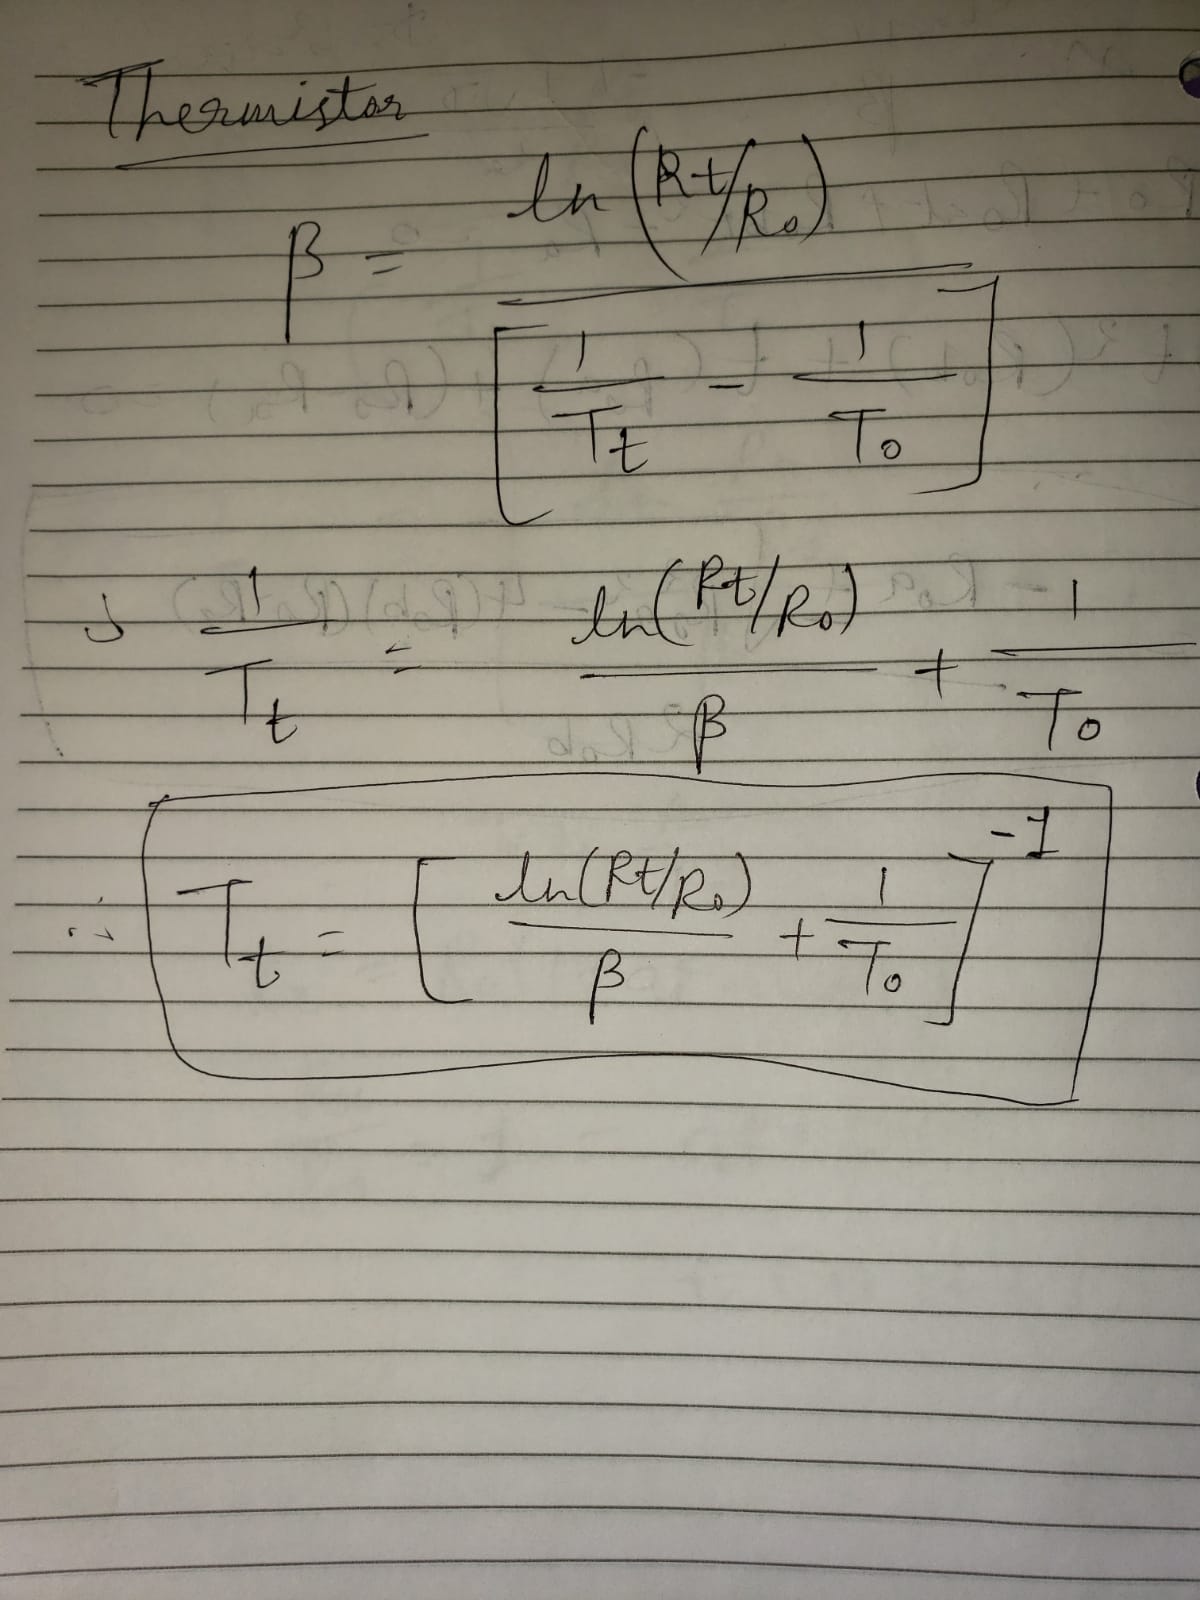 Thermistor
β = ln(Rt/R₀) / [1/Tt - 1/T₀]
1/Tt = ln(Rt/R₀)/β + 1/T₀
∴ Tt = [ln(Rt/R₀)/β + 1/T₀]⁻¹